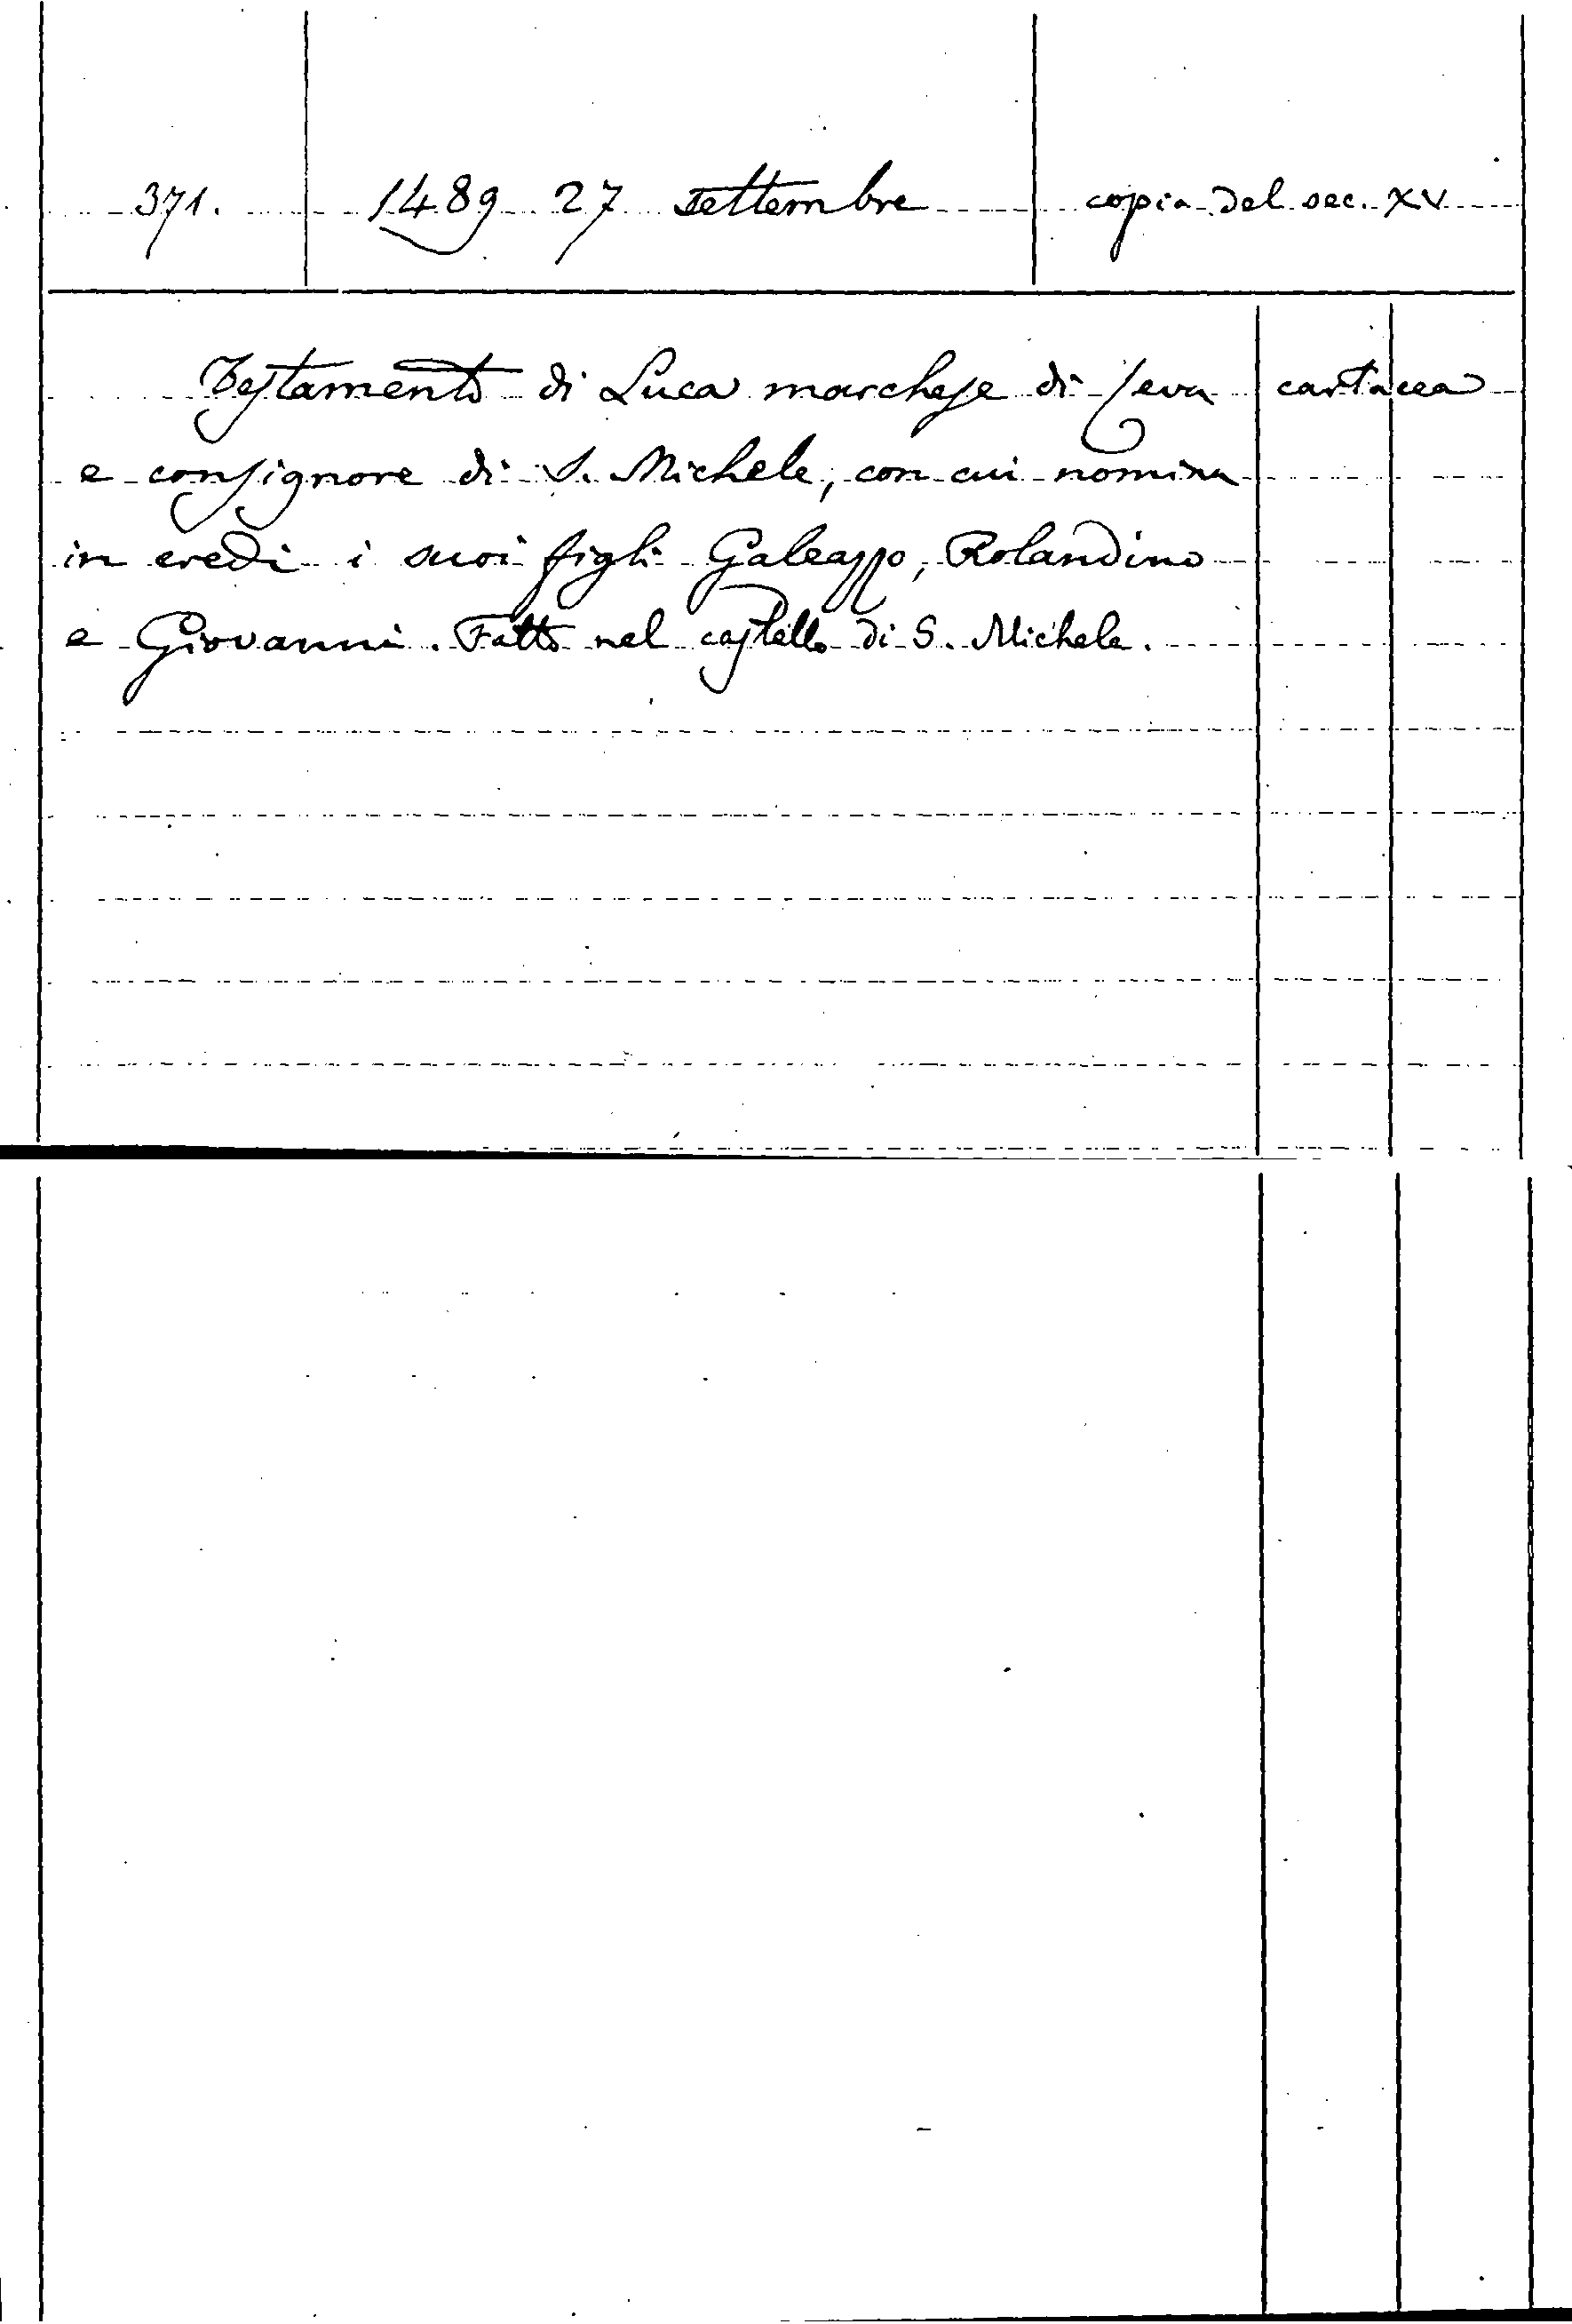 371. 1489 27 settembre copia del sec. XV
Testamento di Luca marchese di Ceva cartacea
e consignore di S. Michele, con cui nomina
in eredi i suoi figli Galeazzo, Rolandino
e Giovanni. Fatto nel castello di S. Michele.